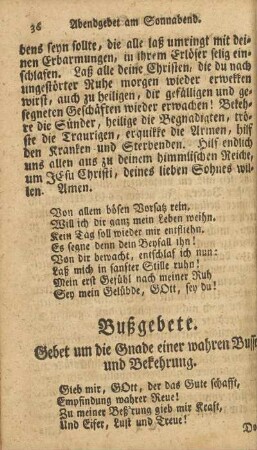 36 Abendgebet am Sonnabend.
bens seyn sollte, die alle laß umringt mit dei-
nen Erbarmungen, in ihrem Erlöser selig ein-
schlafen. Laß alle deine Christen, die du nach
ungestörter Ruhe morgen wieder erwekken
wirst, auch zu heiligen, dir gefälligen und ge-
segneten Geschäften wieder erwachen! Bekeh-
re die Sünder, heilige die Begnadigten, trö-
ste die Traurigen, erquikke die Armen, hilf
den Kranken und Sterbenden. Hilf endlich
uns allen aus zu deinem himmlischen Reiche,
um JEsu Christi, deines lieben Sohnes wil-
len. Amen.
Von allem bösen Vorsatz rein,
Will ich dir ganz mein Leben weihn.
Kein Tag soll wieder mir entfliehn.
Es segne denn dein Beyfall ihn!
Von dir bewacht, entschlaf ich nun:
Laß mich in sanfter Stille ruhn!
Mein erst Gefühl nach meiner Ruh
Sey mein Gelübde, GOtt, sey du!
Bußgebete.
Gebet um die Gnade einer wahren Busse
und Bekehrung.
Gieb mir, GOtt, der das Gute schafft,
Empfindung wahrer Reue!
Zu meiner Beß'rung gieb mir Kraft,
Und Eifer, Lust und Treue!
Do